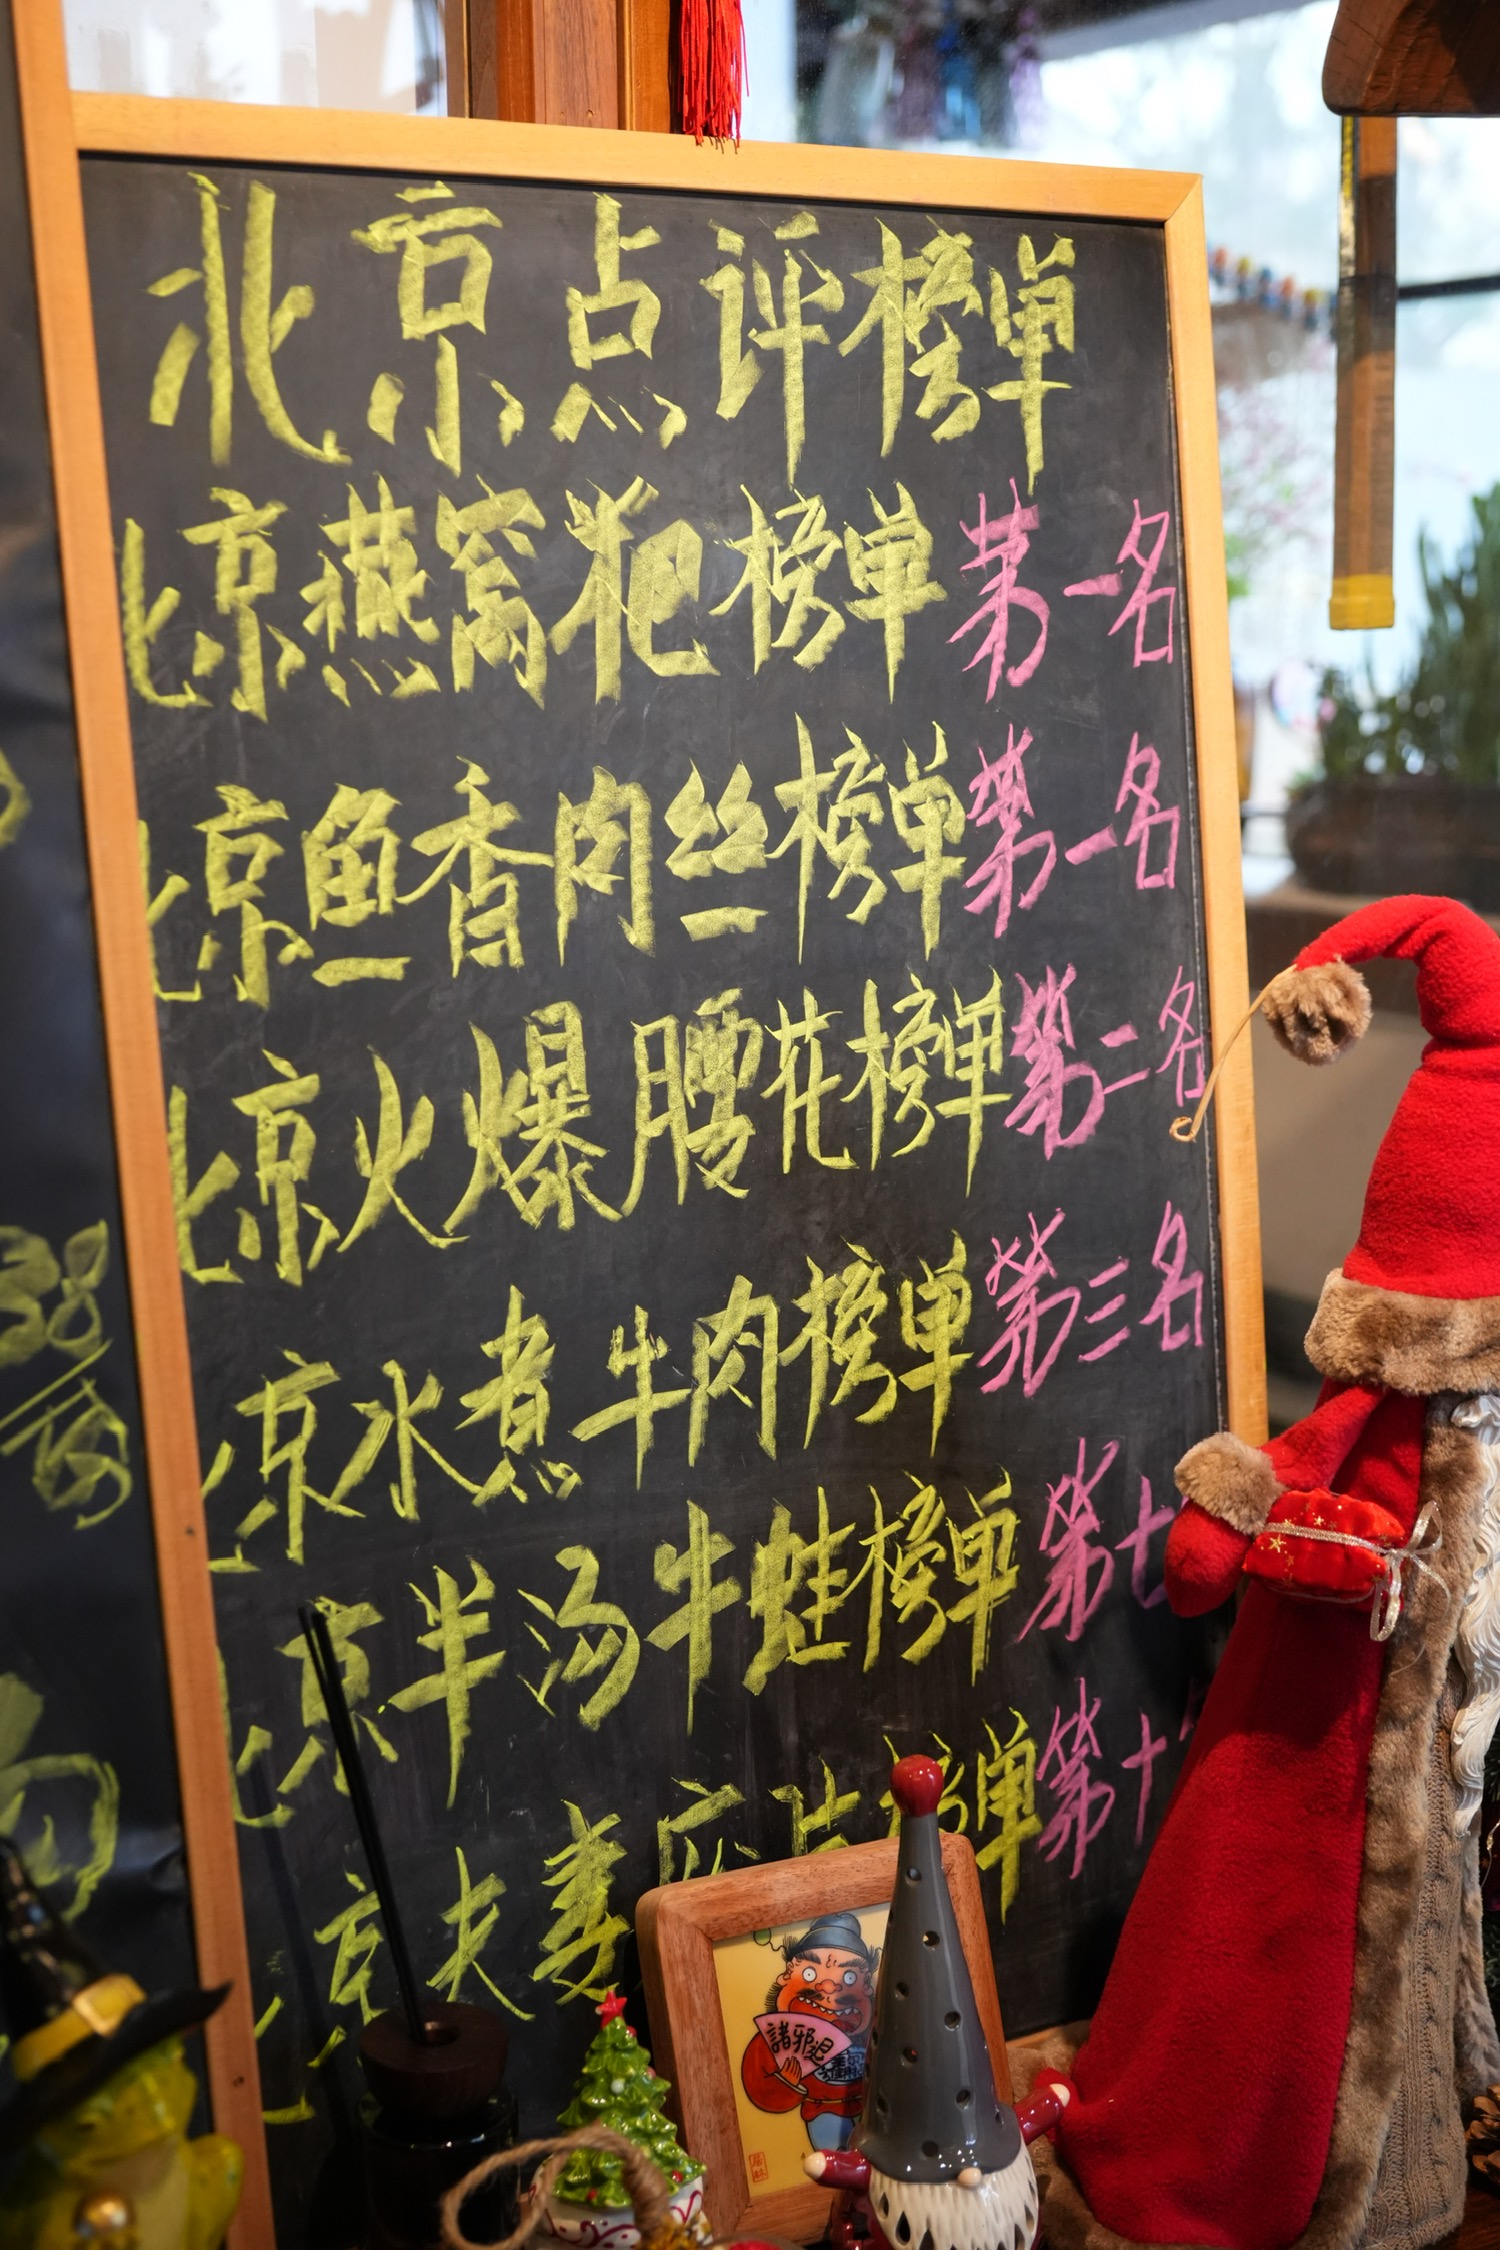 北京点评榜单
北京燕窝粑榜单第一名
北京鱼香肉丝榜单第一名
北京火爆腰花榜单第二名
北京水煮牛肉榜单第三名
北京半汤牛蛙榜单第七
京夫妻 片榜单第十
諸邪退